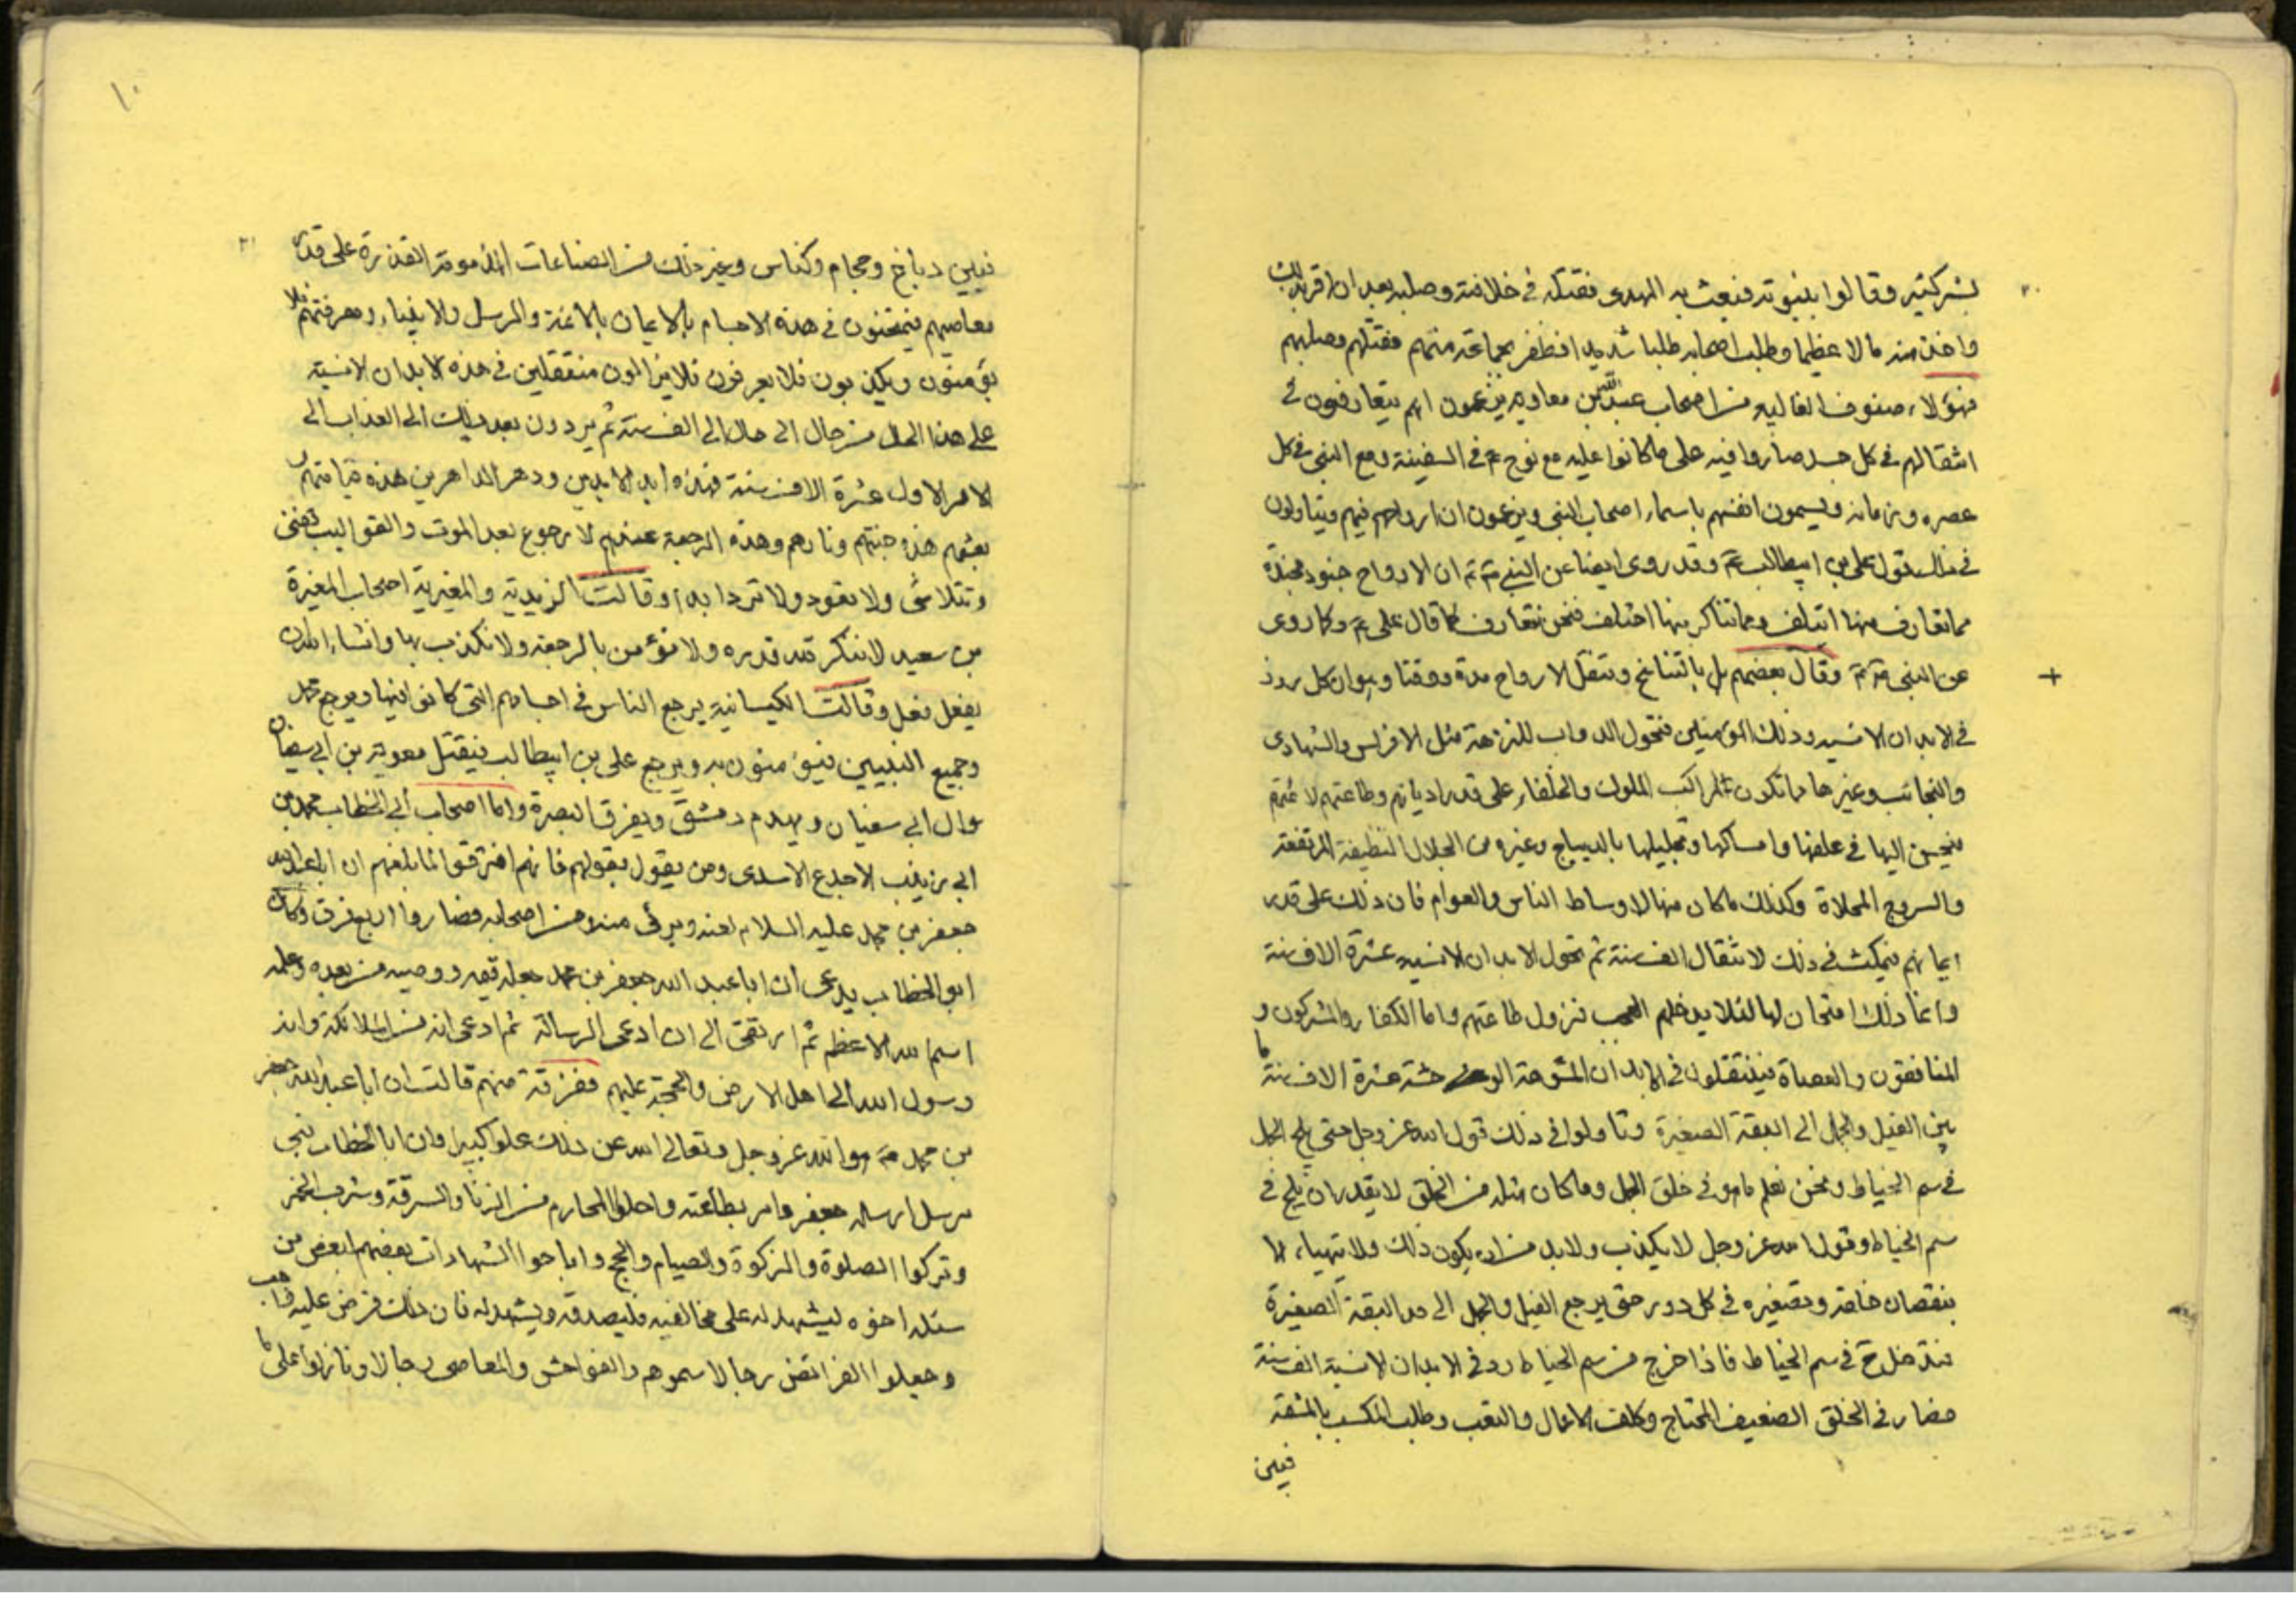 ٢٠
بشر كثير وقالوا بنبوته فبعث به المهدى فقتله فى خلافته وصلبه بعد ان اقر بذلك
واخذ منه مالا عظيما وطلب اصحابه طلبا شديدا فظفر بجماعة منهم فقتلهم وصلبهم
فهؤلاء صنوف الغالية من اصحاب عبد الله بن معاوية يزعمون انهم يتعارفون فى
انتقالهم فى كل جسد صاروا فيه على ما كانوا عليه مع نوح ع فى السفينة ومع النبى فى كل
عصره وزمانه ويسمون انفسهم باسماء اصحاب النبى ويزعون ان ارواحهم فيهم ويتاولون
فى ذلك قول على بن ابيطالب ع وقد روى ايضا عن النبى ان الارواح جنود مجندة
فما تعارف منها ائتلف وما تناكر منها اختلف فنحن نتعارف كما قال على ع وكما روى
عن النبى وقال بعضهم بل بالتناسخ وتنقل الارواح مدة ووقتا وهو ان كل روذ
فى الابدان الانسية وذلك المؤمنين فتحول الدواب للنزهة مثل الافراس والشهادى
والنجائب وغيرها مما تكون لمراكب الملوك والخلفاء على قدر اديانهم وطاعتهم لائمتهم
فيحسن اليها فى علفها وامساكها وتجليلها بالديباج وغيره من الجلال النظيفة المرتفعة
والسروج المحلاة وكذلك ما كان منها لاوساط الناس والعوام فان ذلك على قدر
ايمانهم فيمكث فى ذلك لانتقال الف سنة ثم تحول الابدان الانسية عشرة الاف سنة
وانما ذلك امتحان لها لئلا يدخلهم العجب فتزول طاعتهم واما الكفار والمشركون و
المنافقون والعصاة فينتقلون فى الابدان المشوهة الوحشة عشرة الاف سنة ما
بين الفيل والجمل الى البقة الصغيرة وتاولوا فى ذلك قول الله عز وجل حتى يلج الجمل
فى سم الخياط ونحن نعلم ما هو فى خلق الجمل وما كان مثله من الخلق لا يقدر ان يلج فى
سم الخياط وقول الله عز وجل لا يكذب ولا بد من ان يكون ذلك ولا يتهياء الا
بنقصان خلقه وتصغيره فى كل دور حتى يرجع الفيل والجمل الى حد البقة الصغيرة
فتدخل ح فى سم الخياط فاذا خرج من سم الخياط رد فى الابدان الانسية الف سنة
فصار فى الخلق الضعيف المحتاج وكلف الاعمال والتعب وطلب المكسب بالمشقة
فبين
١٠
٢١
فبين دباغ وحجام وكناس وغير ذلك من الصناعات المذمومة القذرة على قدر
معاصيهم فيمتحنون فى هذه الاجسام بالايمان بالائمة والرسل والانبياء ومعرفتهم فلا
يؤمنون ويكذبون فلا يعرفون فلا يزالون منتقلين فى هذه الابدان الانسية
على هذا الحال من حال الى حال الى الف سنة ثم يردون بعد ذلك الى العذاب الى
الامر الاول عشرة الاف سنة فهذه ابد الابدين ودهر الداهرين هذه قيامتهم و
بعثهم هذه جنتهم ونارهم وهذه الرجعة عندهم لا رجوع بعد الموت والقوالب تفنى
وتتلاشى ولا تعود ولا ترد ابدا وقالت الزيدية والمغيرية اصحاب المغيرة
بن سعيد لا ننكر لله قدره ولا نؤمن بالرجعة ولا نكذب بها وانشاء الله ان
يفعل فعل وقالت الكيسانية يرجع الناس فى اجسامهم التى كانوا فيها ويرجع محمد
وجميع النبيين فيؤمنون به ويرجع على بن ابيطالب فيقتل معوية بن ابى سفيان
وال ابى سفيان ويهدم دمشق ويغرق البصرة واما اصحاب ابى الخطاب محمد بن
ابى زينب الاجدع الاسدى ومن يقول بقولهم فانهم افترقوا لما بلغهم ان ابا عبد الله
جعفر بن محمد عليه السلام لعنه وبرئ منه ومن اصحابه فصاروا اربع فرق وكان
ابو الخطاب يدعى ان ابا عبد الله جعفر بن محمد جعله قيمه ووصيه من بعده وعلمه
اسم الله الاعظم ثم ارتقى الى ان ادعى الرسالة ثم ادعى انه من الملائكة وانه
رسول الله الى اهل الارض والحجة عليهم ففرقة منهم قالت ان ابا عبد الله جعفر
بن محمد هو الله عز وجل وتعالى الله عن ذلك علوا كبيرا وان ابا الخطاب نبى
مرسل ارسله جعفر وامر بطاعته واحلوا المحارم من الزنا والسرقة وشرب الخمر
وتركوا الصلوة والزكوة والصيام والحج واباحوا الشهادات بعضهم لبعض من
سئله اخوه ليشهد له على مخالفيه فليصدقه ويشهد له فان ذلك فرض عليه واجب
وجعلوا الفرائض رجالا سموهم والفواحش والمعاصى رجالا وتاولوا على ما